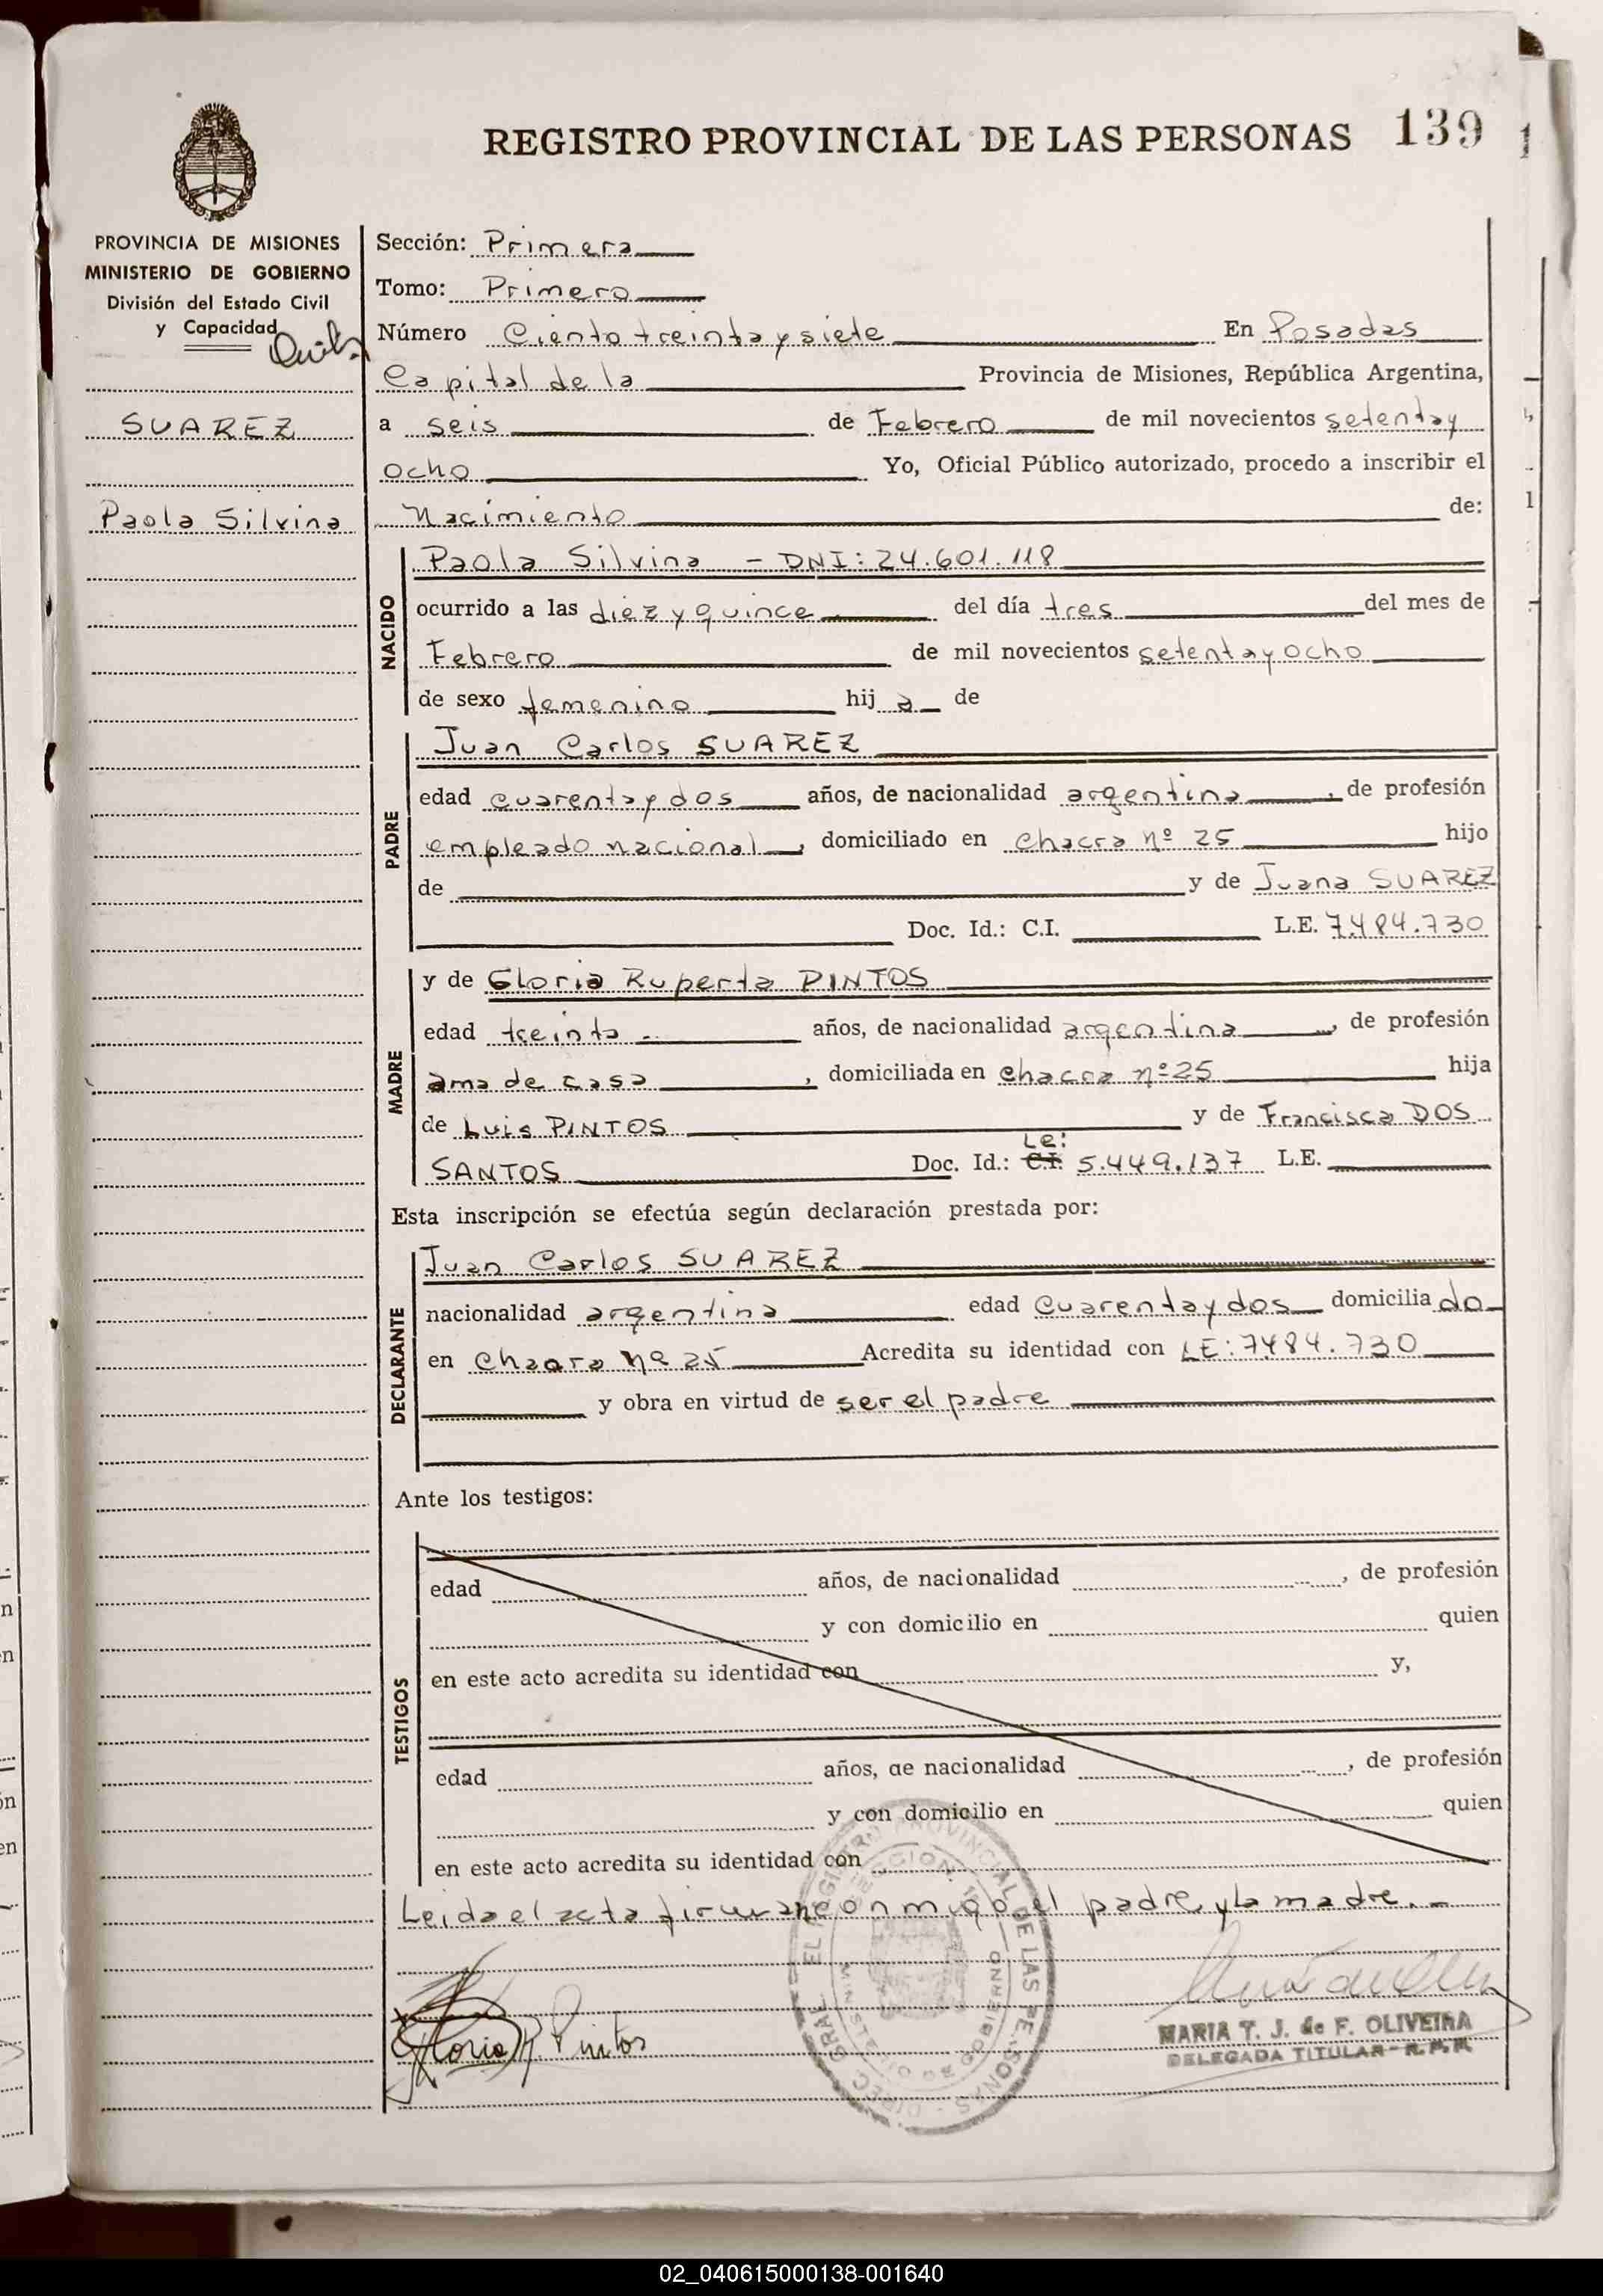 REGISTRO PROVINCIAL DE LAS PERSONAS 139
PROVINCIA DE MISIONES
MINISTERIO DE GOBIERNO
División del Estado Civil
y Capacidad
SUAREZ
Paola Silvina
Sección: Primera
Tomo: Primero
Número Ciento treinta y siete En Posadas
Capital de la Provincia de Misiones, República Argentina,
a seis de Febrero de mil novecientos setenta y
ocho Yo, Oficial Público autorizado, procedo a inscribir el
Nacimiento de:
NACIDO
Paola Silvina - DNI: 24.601.118
ocurrido a las diez y quince del día tres del mes de
Febrero de mil novecientos setenta y ocho
de sexo femenino hij a de
PADRE
Juan Carlos SUAREZ
edad cuarenta y dos años, de nacionalidad argentina, de profesión
empleado nacional, domiciliado en chacra nº 25 hijo
de y de Juana SUAREZ
Doc. Id.: C.I. L.E. 7.484.730
MADRE
y de Gloria Ruperta PINTOS
edad treinta años, de nacionalidad argentina, de profesión
ama de casa, domiciliada en chacra nº 25 hija
de Luis PINTOS y de Francisca DOS
SANTOS Doc. Id.: C.I. LE: 5.449.137 L.E.
Esta inscripción se efectúa según declaración prestada por:
DECLARANTE
Juan Carlos SUAREZ
nacionalidad argentina edad cuarenta y dos domicilia do
en chacra nº 25 Acredita su identidad con LE: 7484.730
y obra en virtud de ser el padre
Ante los testigos:
TESTIGOS
edad años, de nacionalidad , de profesión
y con domicilio en quien
en este acto acredita su identidad con y,
edad años, de nacionalidad , de profesión
y con domicilio en quien
en este acto acredita su identidad con
Leida el acta firman con migo el padre y la madre.-
Gloria R Pintos
DIREC. GRAL. EL REGISTRO PROVINCIAL DE LAS PERSONAS
SECCION 1ª
MINISTERIO DE GOBIERNO
MARIA T. J. de F. OLIVEIRA
DELEGADA TITULAR - R.P.P.
02_040615000138-001640